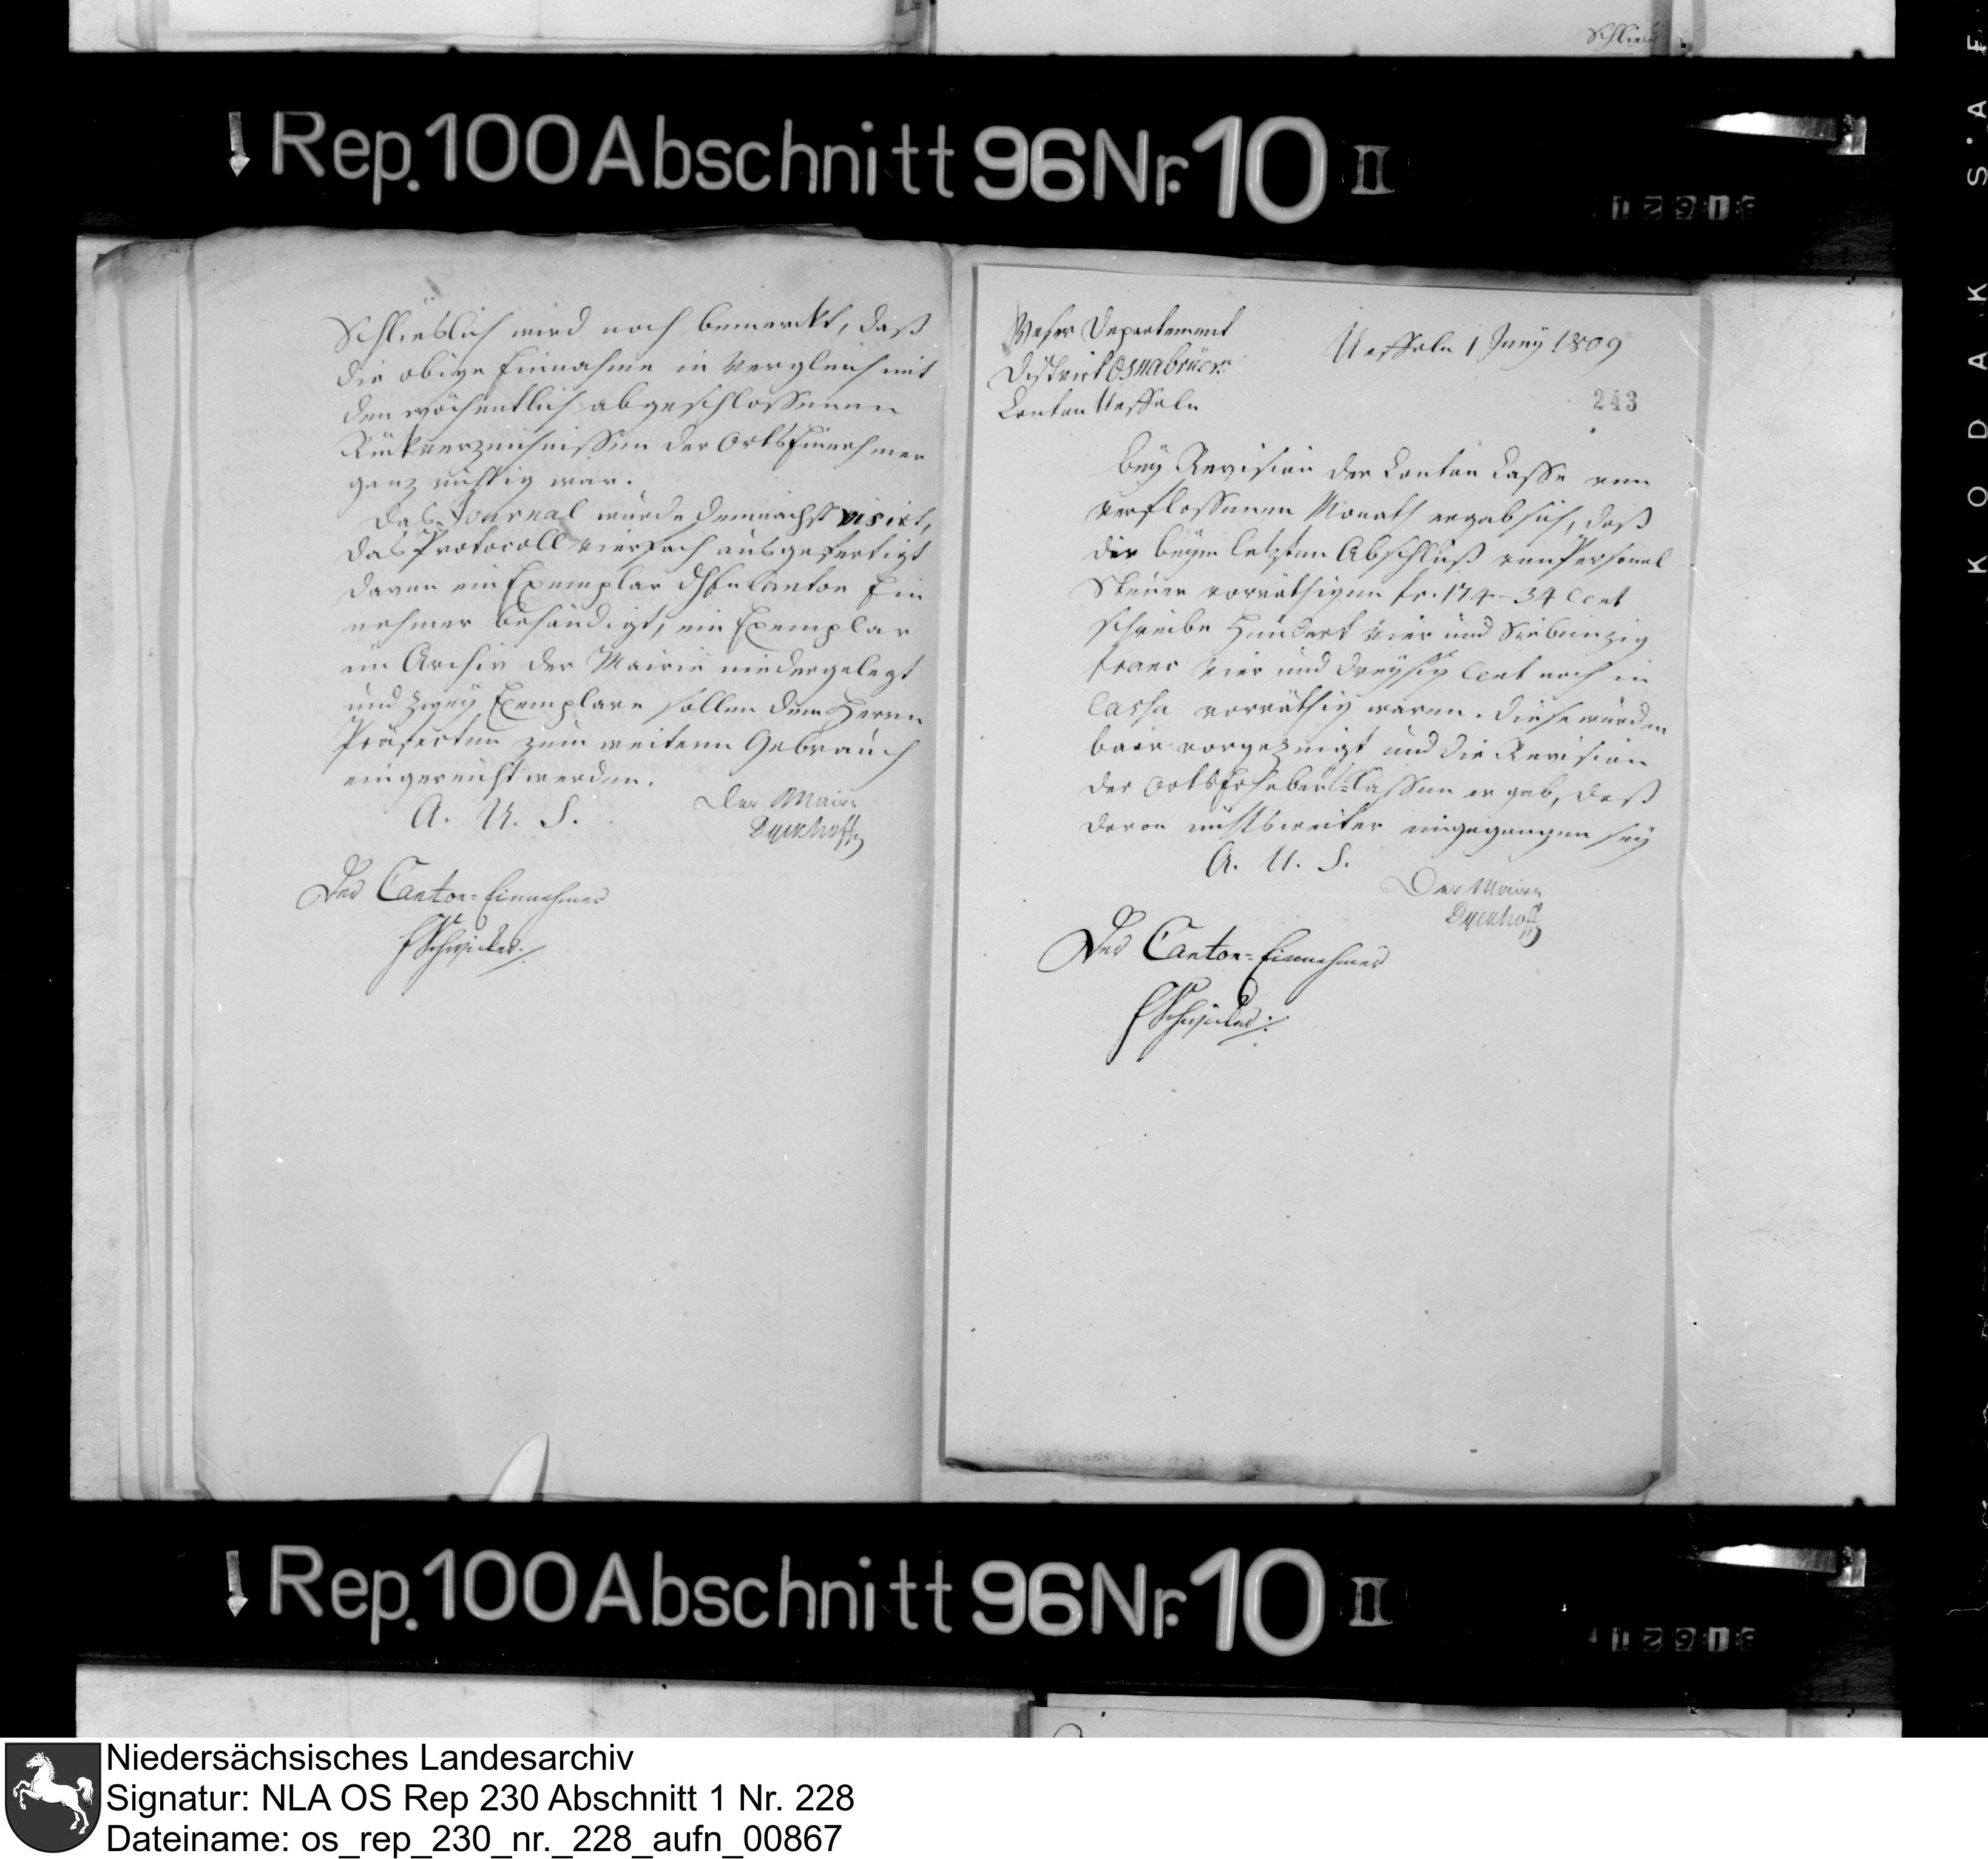 Schließ
Rep. 100 Abschnitt 96 Nr. 10 II
Schlieslich wird noch bemerckt, daß
die obige Einnahme in Vergleich mit
den wöchentlich abgeschlossenen
verzeichnissen der Orts Einnehmer
ganz richtig war.
Das Journal wurde demnächst visirt,
das Protocoll vierfach ausgefertigt
davon ein Exemplar Canton Ein
nehmer behändigt, ein Exemplar
im Archiv der Mairie niedergelegt
und zwey Exemplare sollen dem Herrn
Präfecten zum weitern Gebrauch
eingereicht werden.
A. U. S.
Der Maire
Dyckhoff
Der Canton-Einnehmer
Weser Departement
District Osnabrück
Canton Uesseln
Uesseln 1 Juny 1809
243
bey Revision der Canton Casse vom
verflossenen Monath ergab sich, daß
die beym letzten Abschluß von Personal
Steuer vorräthigen fr. 174-34 Cent
schreibe Hundert vier und Siebenzig
franc vier und dreysig Cent noch in
Cassa vorräthig waren. Diese wurden
baar vorgezeigt und die Revision
der Orts Erheber Cassen ergab, daß
davon nichts weiter eingegangen sey
A. U. S.
Der Maire
Dyckhoff
Der Canton-Einnehmer
Rep. 100 Abschnitt 96 Nr. 10 II
KODAK S.A.F.
Niedersächsisches Landesarchiv
Signatur: NLA OS Rep 230 Abschnitt 1 Nr. 228
Dateiname: os_rep_230_nr._228_aufn_00867